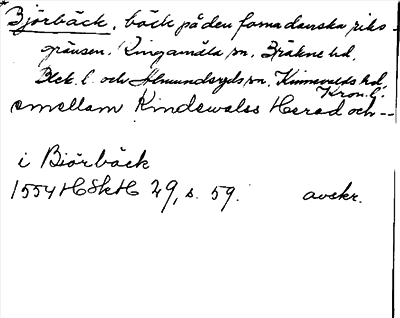 Björbäck, bäck på den forna danska riks-
gränsen. Ringamåla sn, Bräkne hd,
Blek. l. och Almundsryds sn, Kinnevalds hd,
Kron. l.
emellam Kindewalss Herad och --
i Biörbäck
1554 HSkH 29, s. 59. avskr.